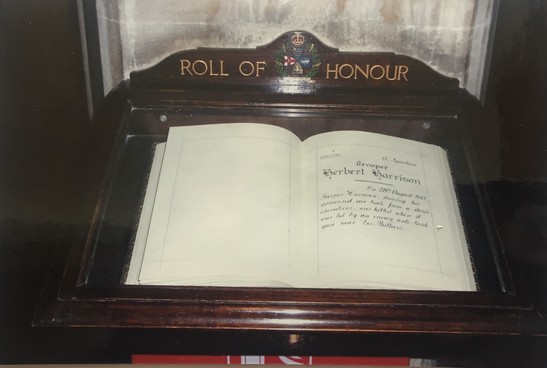 ROLL OF HONOUR
Squadron
Trooper
Herbert Harrison
On 28th August
Trooper Harrison, driving his
armoured car back from a day's
operations, was killed when it
was hit by an enemy anti-tank
gun near Les Thilliers.